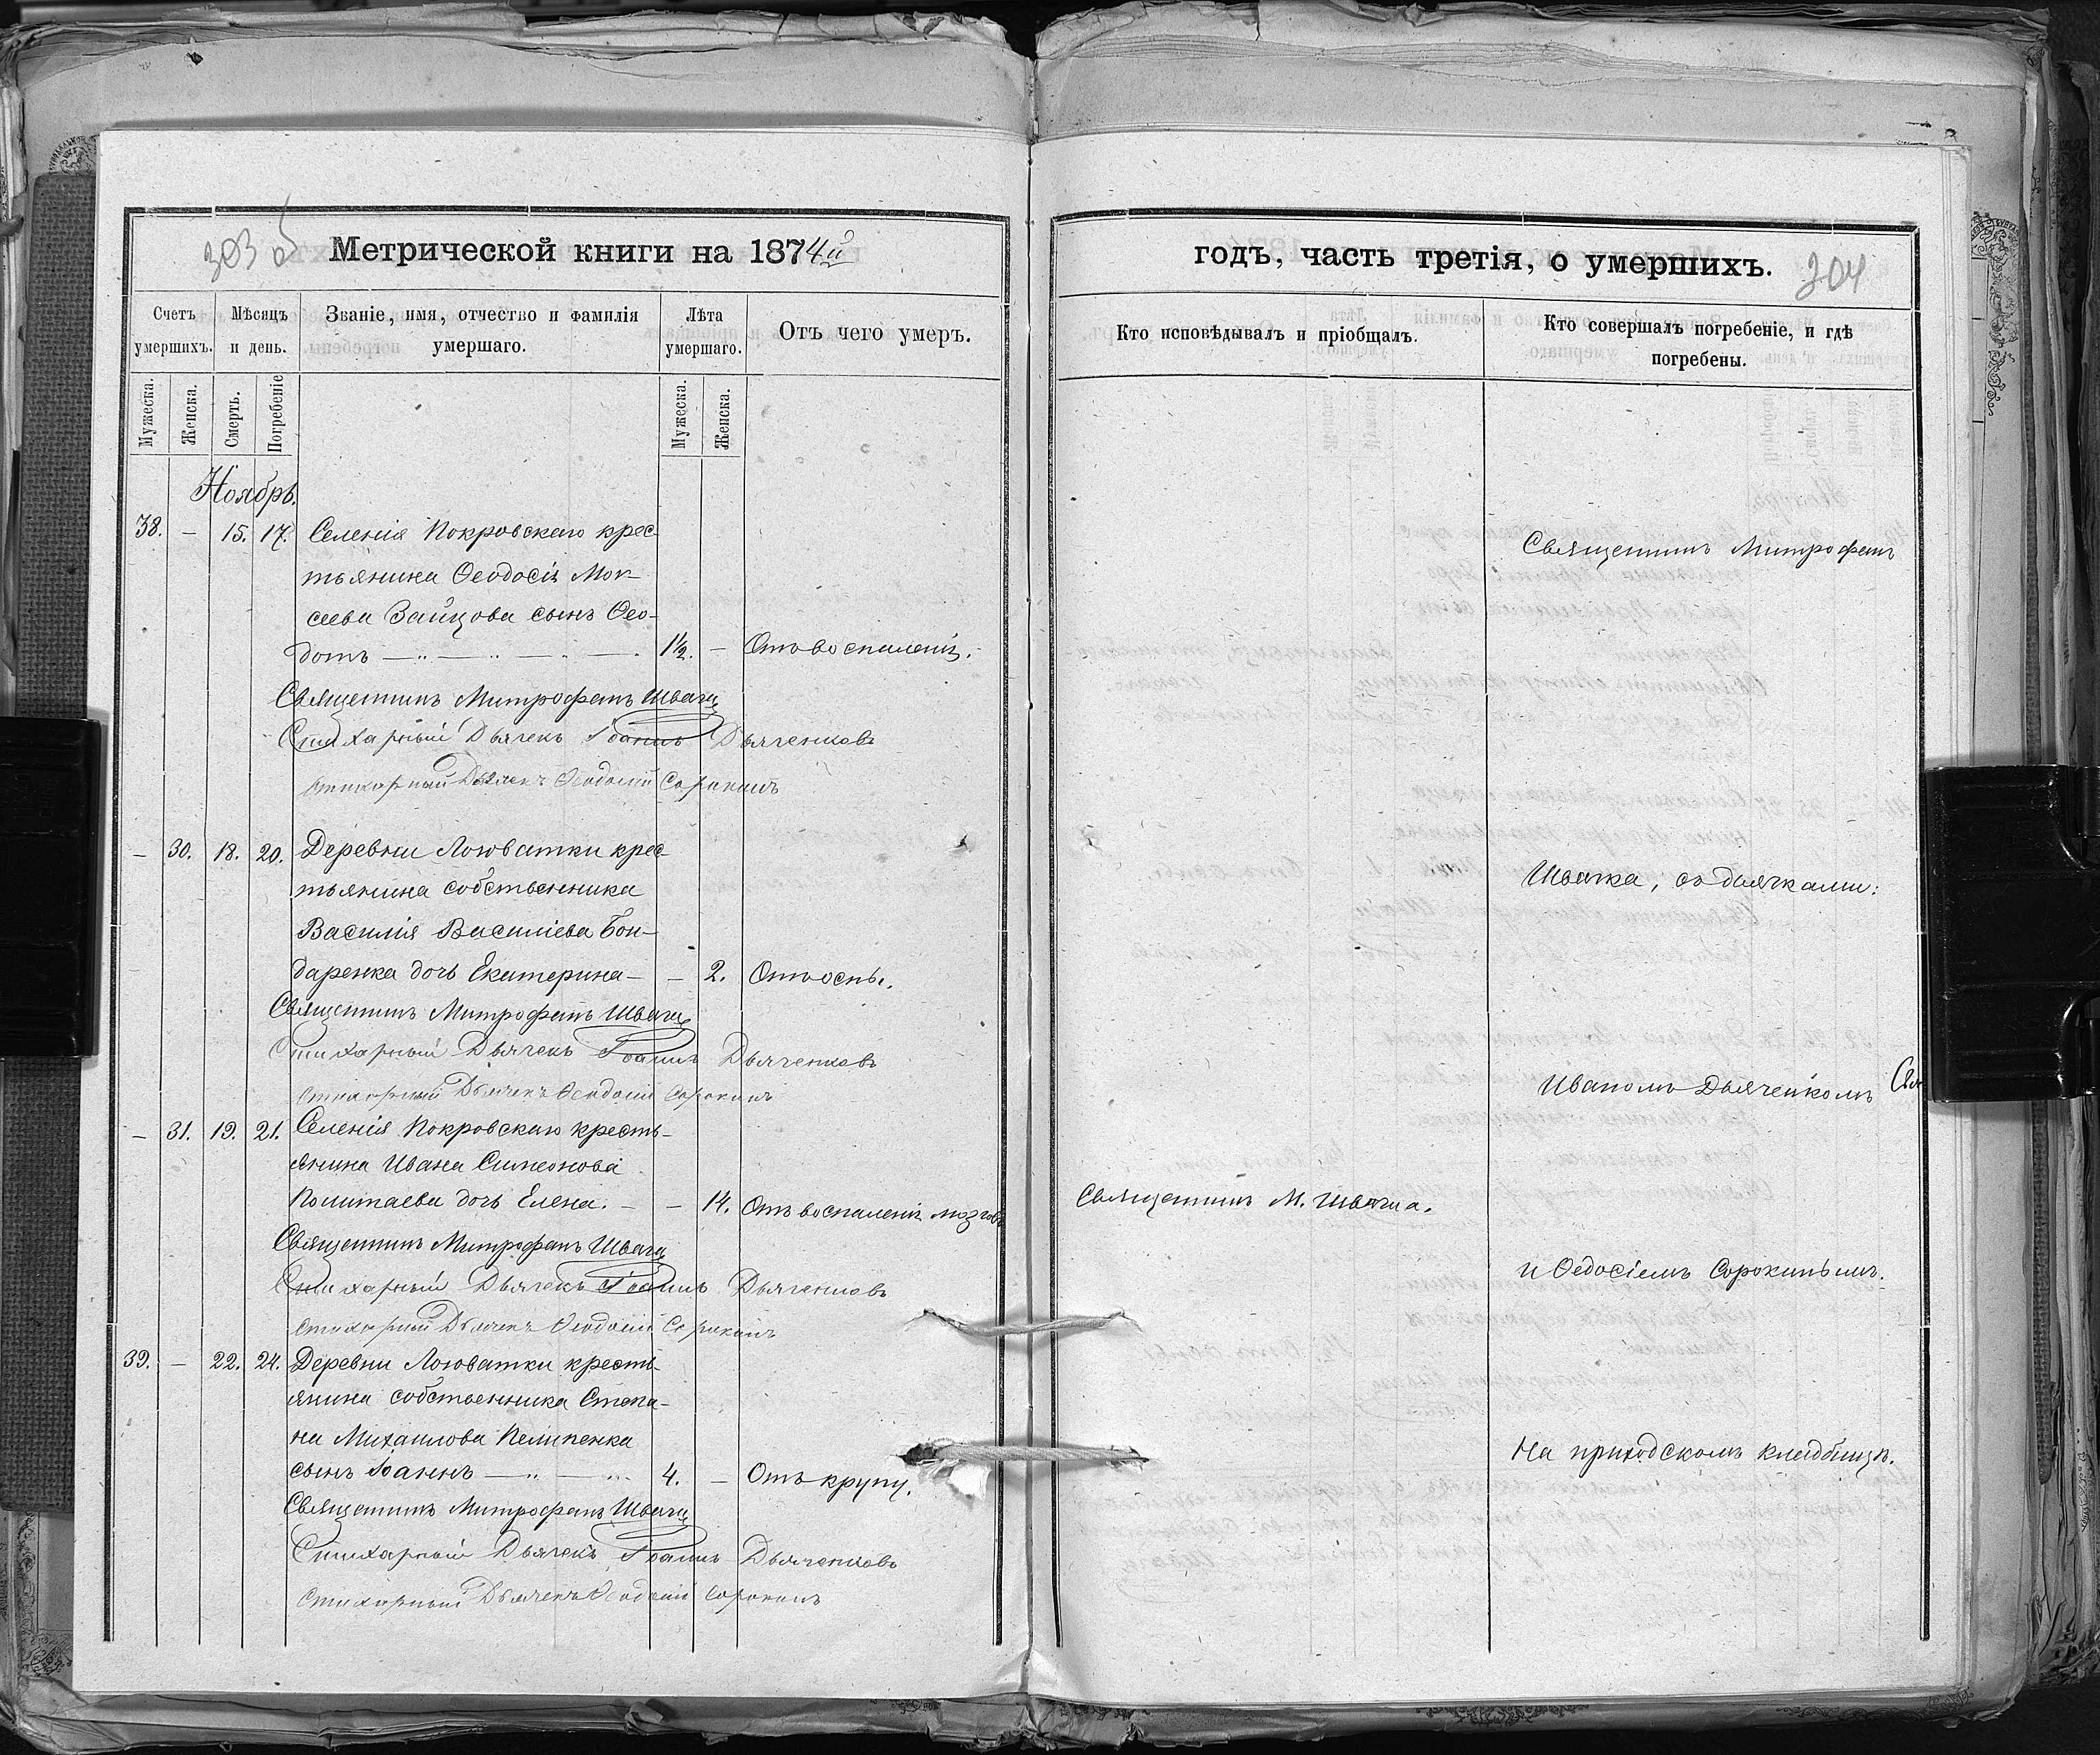 303 об
Метрической книги на 1874й
Счетъ умершихъ.
Мѣсяцъ и день.
Званіе, имя, отчество и фамилія умершаго.
Лѣта умершаго.
Отъ чего умеръ.
Мужеска.
Женска.
Смерть.
Погребеніе
Мужеска.
Женска.
Ноябрь.
38. — 15. 17. Селенія Покровскаго крес-
тьянина Ѳеодосія Мои-
сеева Зайцова сынъ Ѳео-
дотъ — 1½. — Отъ воспаленія.
Священникъ Митрофанъ Швачка
Стихарный Дьячекъ Іоаннъ Дьяченковъ
Стихарный Дьячекъ Ѳеодосій Сорокинъ
— 30. 18. 20. Деревни Логоватки крес-
тьянина собственника
Василія Василіева Бон-
даренка дочь Екатерина — — 2. Отъ оспы.
Священникъ Митрофанъ Швачка
Стихарный Дьячекъ Іоаннъ Дьяченковъ
Стихарный Дьячекъ Ѳеодосій Сорокинъ
— 31. 19. 21. Селенія Покровскаго кресть-
янина Ивана Симеонова
Полтаева дочь Елена. — — 14. Отъ воспаленія мозговъ
Священникъ Митрофанъ Швачка
Стихарный Дьячекъ Іоаннъ Дьяченковъ
Стихарный Дьячекъ Ѳеодосій Сорокинъ
39. — 22. 24. Деревни Логоватки кресть-
янина собственника Степа-
на Михаилова Пелипенка
сынъ Іоаннъ — 4. — Отъ крупу.
Священникъ Митрофанъ Швачка
Стихарный Дьячекъ Іоаннъ Дьяченковъ
Стихарный Дьячекъ Ѳеодосій Сорокинъ
годъ, часть третія, о умершихъ.
304
Кто исповѣдывалъ и пріобщалъ.
Кто совершалъ погребеніе, и гдѣ погребены.
Священникъ Митрофанъ
Швачка, съ дьячками:
Иваномъ Дьяченкомъ
Священникъ М. Швачка.
и Ѳедосіемъ Сорокинымъ.
На приходскомъ кладбищѣ.